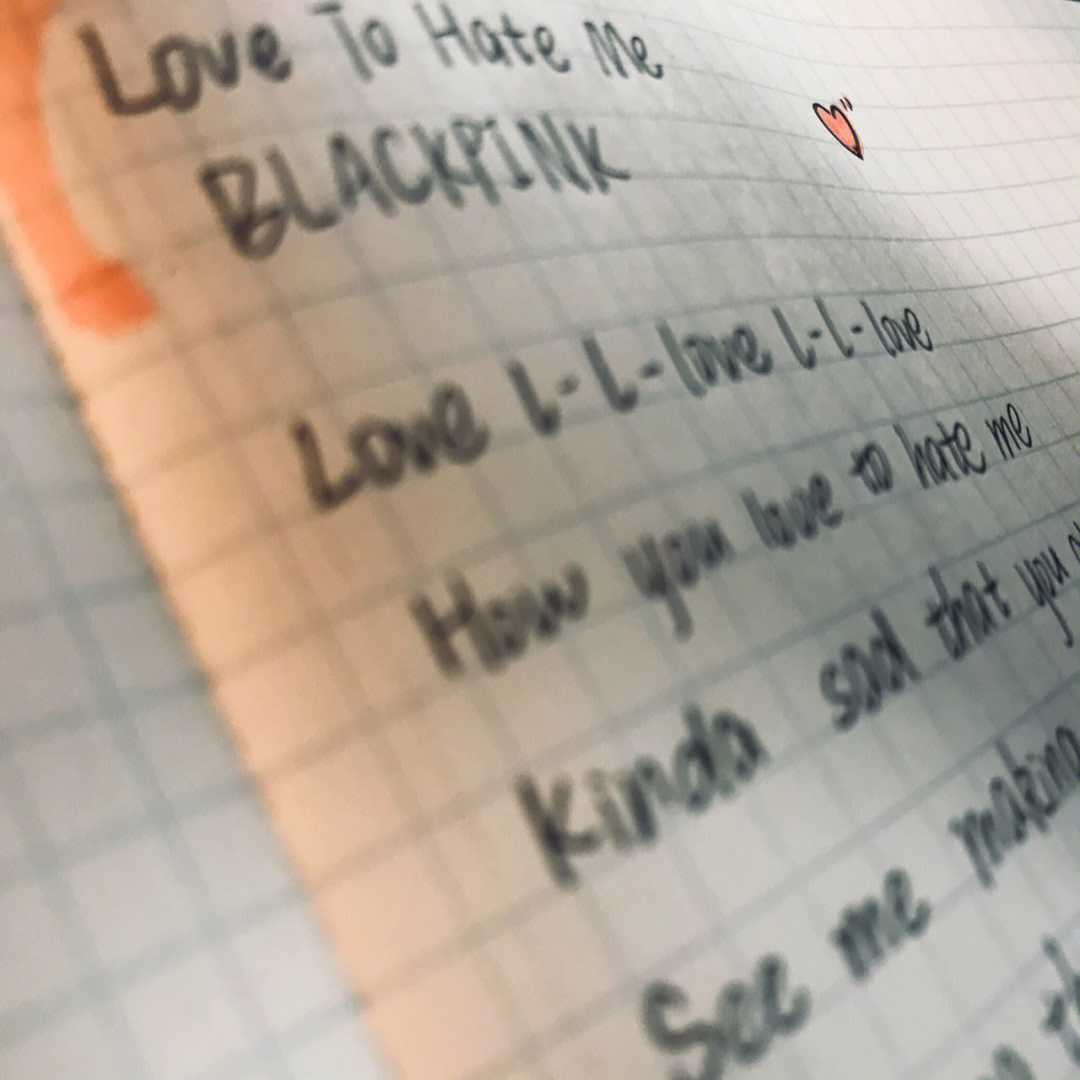 Love To Hate Me
BLACKPINK
Love L-L-love L-L-love
How you love to hate me
Kinda sad that you
See me making